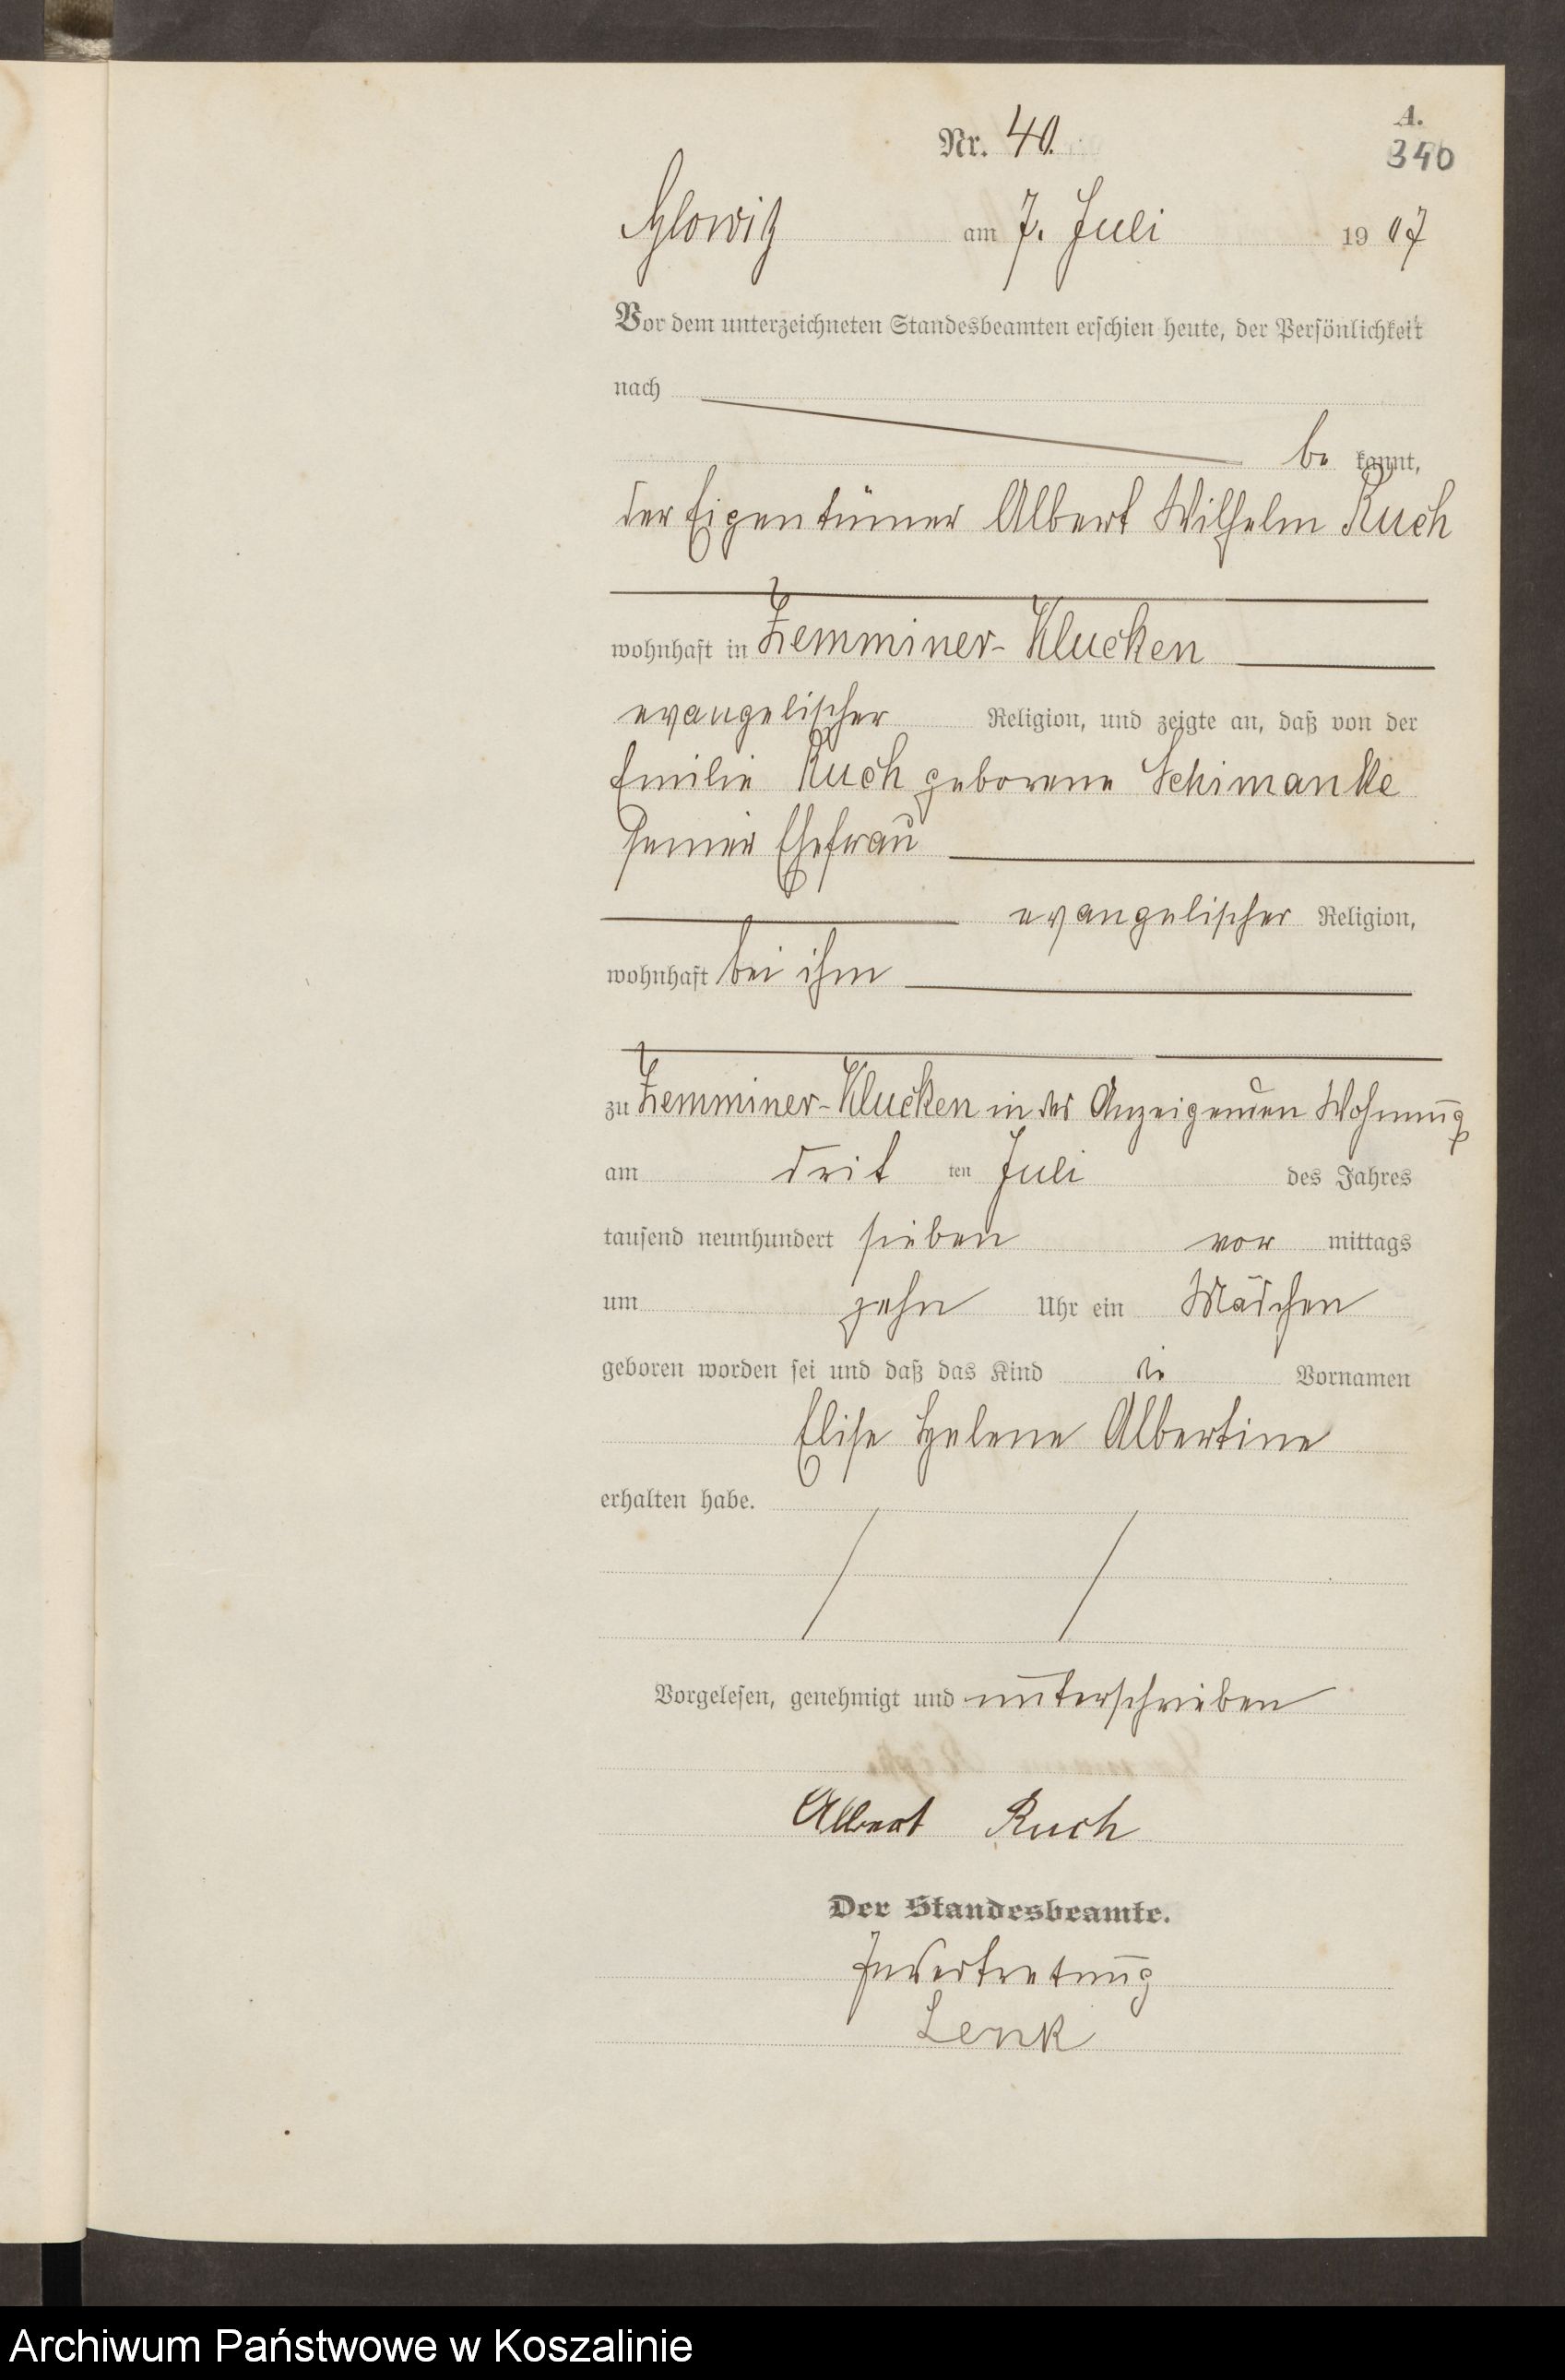 A.
Nr. 40.
340
Glowitz am 7. Juli 1907
Vor dem unterzeichneten Standesbeamten erschien heute, der Persönlichkeit
nach
be kannt,
der Eigentümer Albert Wilhelm Ruch
wohnhaft in Zemminer-Klucken
evangelischer Religion, und zeigte an, daß von der
Emilie Ruch geborene Schimanke
seiner Ehefrau
evangelischer Religion,
wohnhaft bei ihm
zu Zemminer-Klucken in des Anzeigenden Wohnung
am dritten Juli des Jahres
tausend neunhundert sieben vormittags
um zehn Uhr ein Mädchen
geboren worden sei und daß das Kind die Vornamen
Elise Helene Albertine
erhalten habe.
Vorgelesen, genehmigt und unterschrieben
Albert Ruch
Der Standesbeamte.
In Vertretung
Lenk
Archiwum Państwowe w Koszalinie